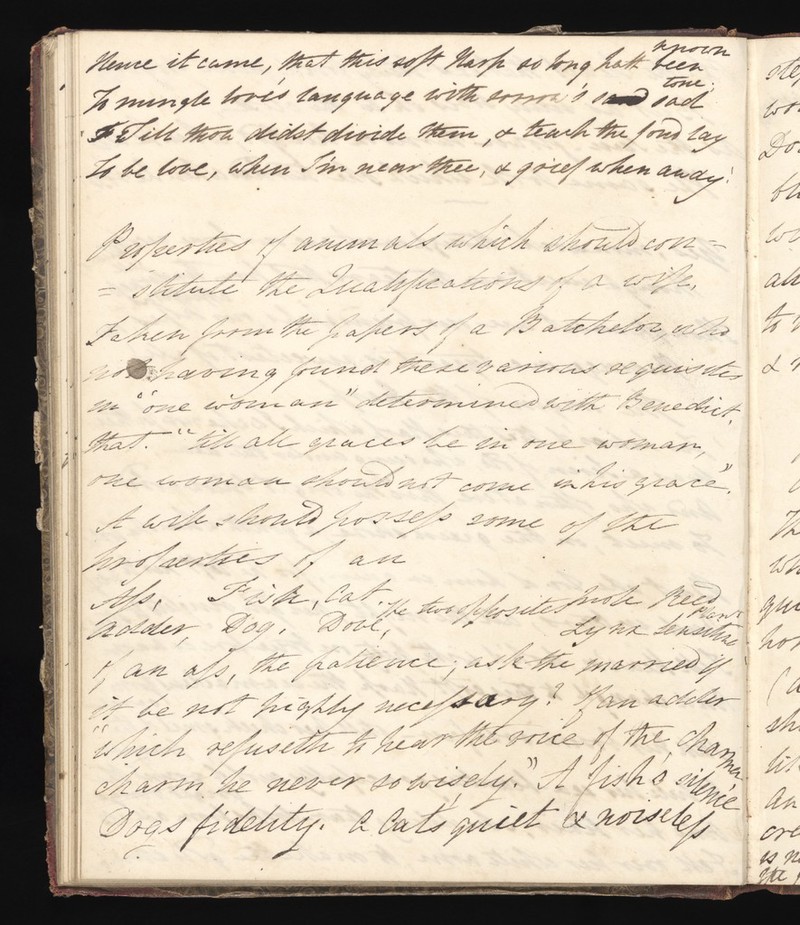 Hence it came, that this soft Harp so long hath known
been
To mingle love's language with sorrow's sad tone.
Till thou didst divide them, & teach the fond lay
To be love, when I'm near thee, & grief when away!
Properties of animals which should con=
=stitute the Qualifications of a wife.
Taken from the papers of a Batchelor, who
not having found these various requisites
in "one woman" determined with Benedict,
that. "till all graces be in one woman,
one woman should not come in his grace".
A wife should possess some of the
properties of an
Ass, Fish, Cat, the two opposites Mole Reed
Adder, Dog, Dove, Lynx Sensitive Plant
Of an ass, the patience; ask the married if
it be not highly necessary? Of an adder
"which refuseth to hear the voice of the charmer
charm he never so wisely." A fish's silence
Dogs fidelity. a Cat's quiet & noiseless
ste
wo
Do
bl
wi
al
to
&
Th
wh
qui
hor
(a
sh
lit
an
cre
is n
the